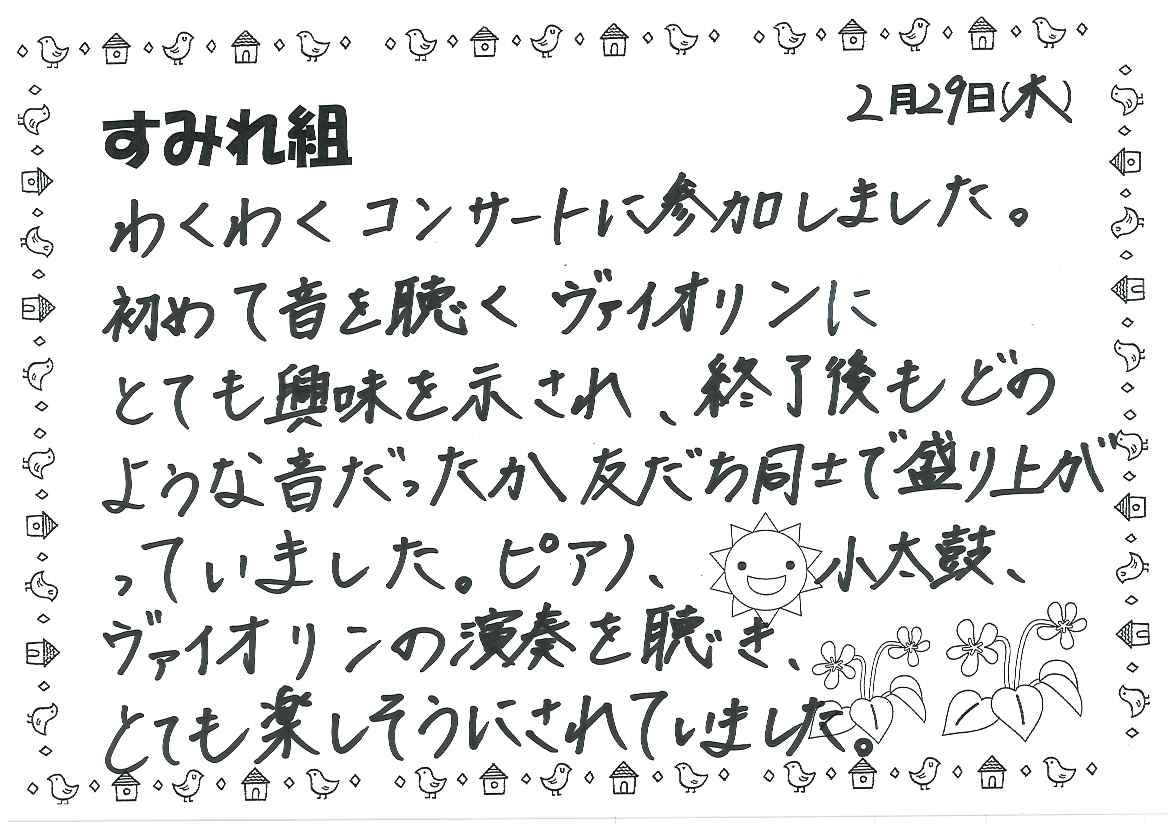 2月29日(木)
すみれ組
わくわくコンサートに参加しました。
初めて音を聴くヴァイオリンに
とても興味を示され、終了後もどの
ような音だったか、友だち同士で盛り上が
っていました。ピアノ、小太鼓、
ヴァイオリンの演奏を聴き、
とても楽しそうにされていました。